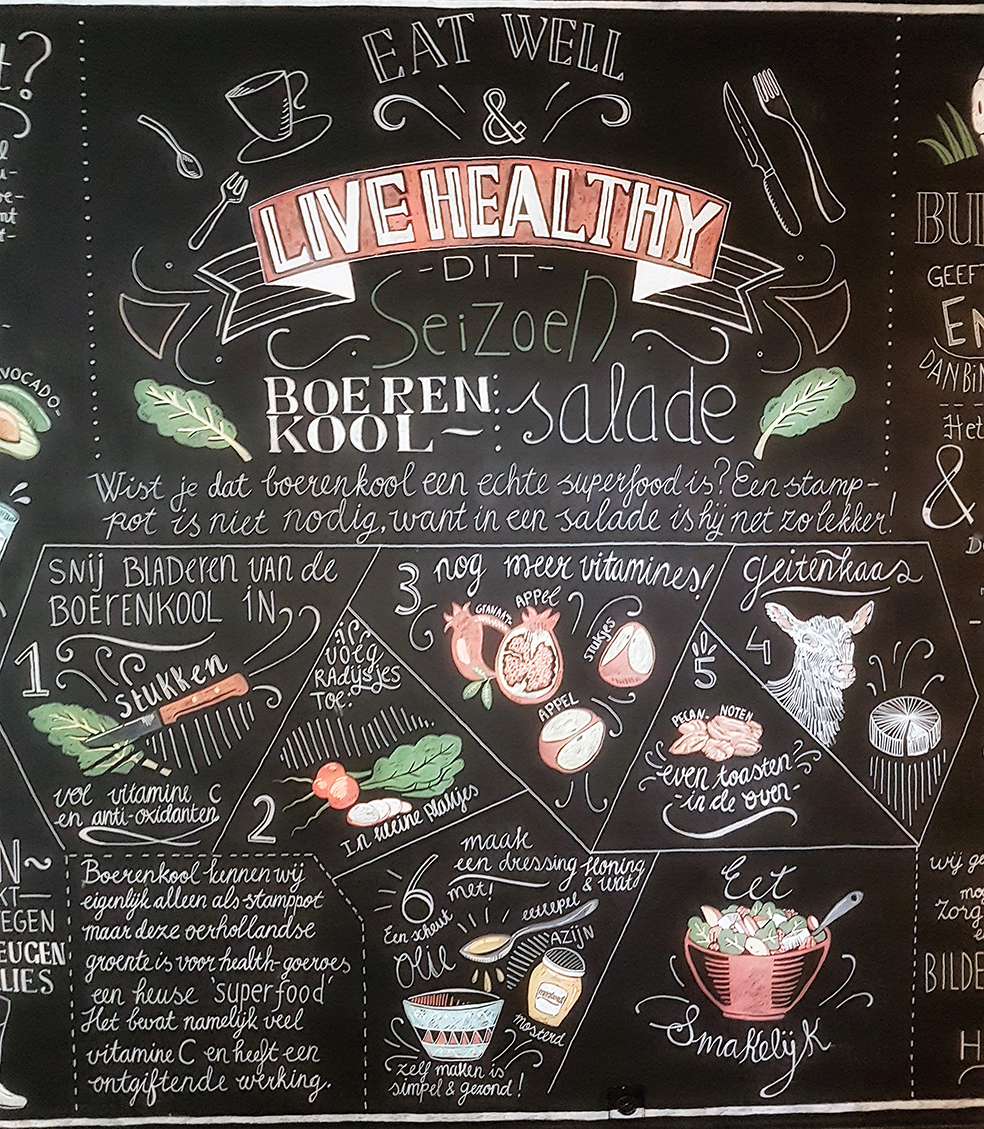 EAT WELL
&
LIVE HEALTHY
-DIT-
Seizoen
BOEREN
KOOL~
salade
Wist je dat boerenkool een echte superfood is? Een stamp-
pot is niet nodig, want in een salade is hij net zo lekker!
SNIJ BLADEREN VAN de
BOERENKOOL IN
1
STUKKEN
vol vitamine C
en anti-oxidanten
voeg
RADIJSJES
TOE.
2
In kleine plakjes
3 nog meer vitamines!
GRANAAT-
APPEL
stukjes
APPEL
geitenkaas
4
5
PECAN-NOTEN
even toasten
-in de oven-
Boerenkool kennen wij
eigenlijk alleen als stamppot
maar deze oerhollandse
groente is voor health-goeroes
een heuse 'superfood'
Het bevat namelijk veel
vitamine C en heeft een
ontgiftende werking.
maak
een dressing
met!
6
Honing
& wat
Een scheut
Olie
eetlepel
AZIJN
mosterd
mosterd
zelf maken is
simpel & gezond!
Eet
Smakelijk
t?
AVOCADO-
N~
KT—
EGEN
EUGEN
LIES
BU
GEEF
EN
DAN BIN
Het
&
wij ge
mog
Zorg
BILDE
H